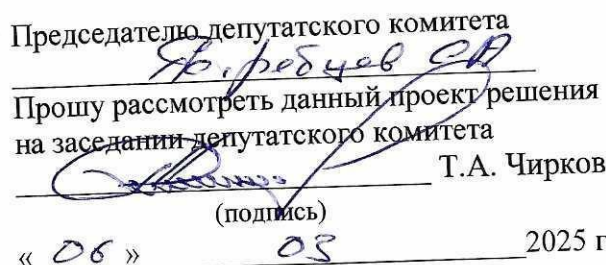 Председателю депутатского комитета
СА
Прошу рассмотреть данный проект решения
на заседании депутатского комитета
Т.А. Чирков
(подпись)
« 06 » 03 2025 г